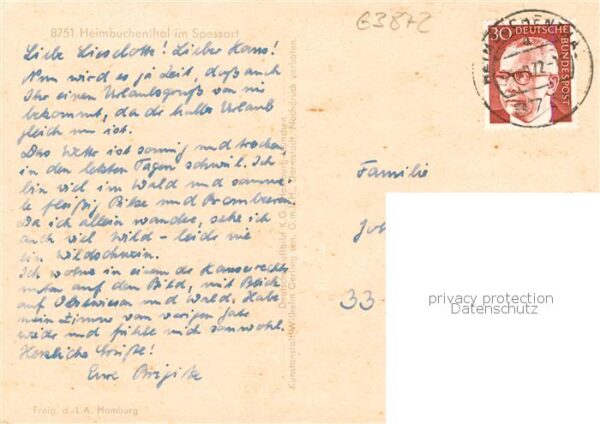 8751 Heimbuchenthal im Spessart
Liebe Lieselotte! Lieber Hans!
Nun wird es ja Zeit, daß auch
Ihr einen Urlaubsgruß von mir
bekommt, da der halbe Urlaub
gleich um ist.
Das Wetter ist sonnig und trocken,
in den letzten Tagen schwül. Ich
bin viel im Wald und samme
le fleißig Pilze und Brombeeren.
Da ich allein wandre, sehe ich
auch viel Wild - leider nie
ein Wildschwein.
Ich wohne in einem der
unten auf dem Bild, mit Blick
auf Obstwiesen und Wald. Habe
mein Zimmer vom vorigen Jahr
wieder und fühle mich sauwohl.
Herzliche Grüße!
Eure Brigitte
Freig. d. L.A. Hamburg
Nachdruck verboten
E3872
30
DEUTSCHE
BUNDESPOST
Familie
33-
privacy protection
Datenschutz